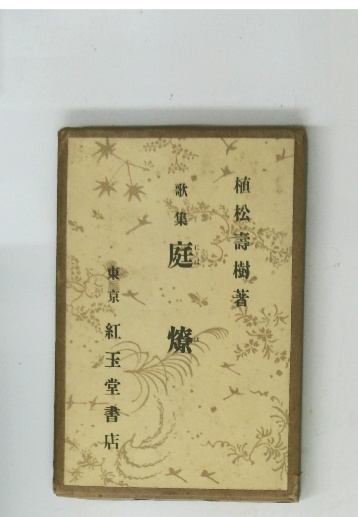 植松壽樹著
歌集
庭燎
東京 紅玉堂書店